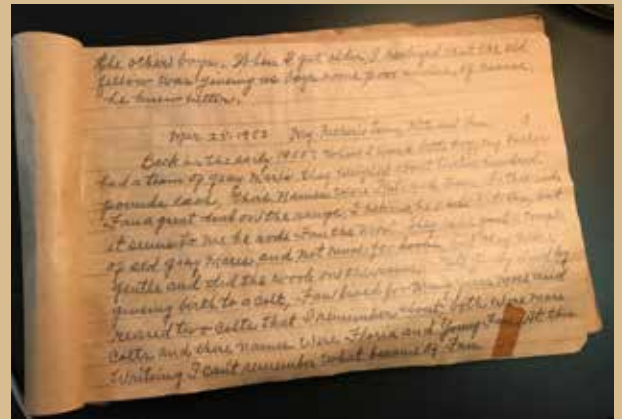 the other boys. When I got older, I realized that the old
fellow was giving us boys some poor advice, of course,
he knew better.
Mar. 25. 1952 My Father's Team, and Fan. I
Back in the early 1900s when I was a little boy, my Father
had a team of gray mares they weighed about twelve hundred
pounds each, there Names were and Fan.
Fan a great deal on the range, I
it seems to me he rode Fan the most. They were good
of old gray mares and not much for
gentle and did the work on the
giving birth to a colt, Fan lived for many years more and
reared two colts that I remember about both were mare
colts and there names were Floria and Young Fan. At this
Writing I can't remember what became of Fan